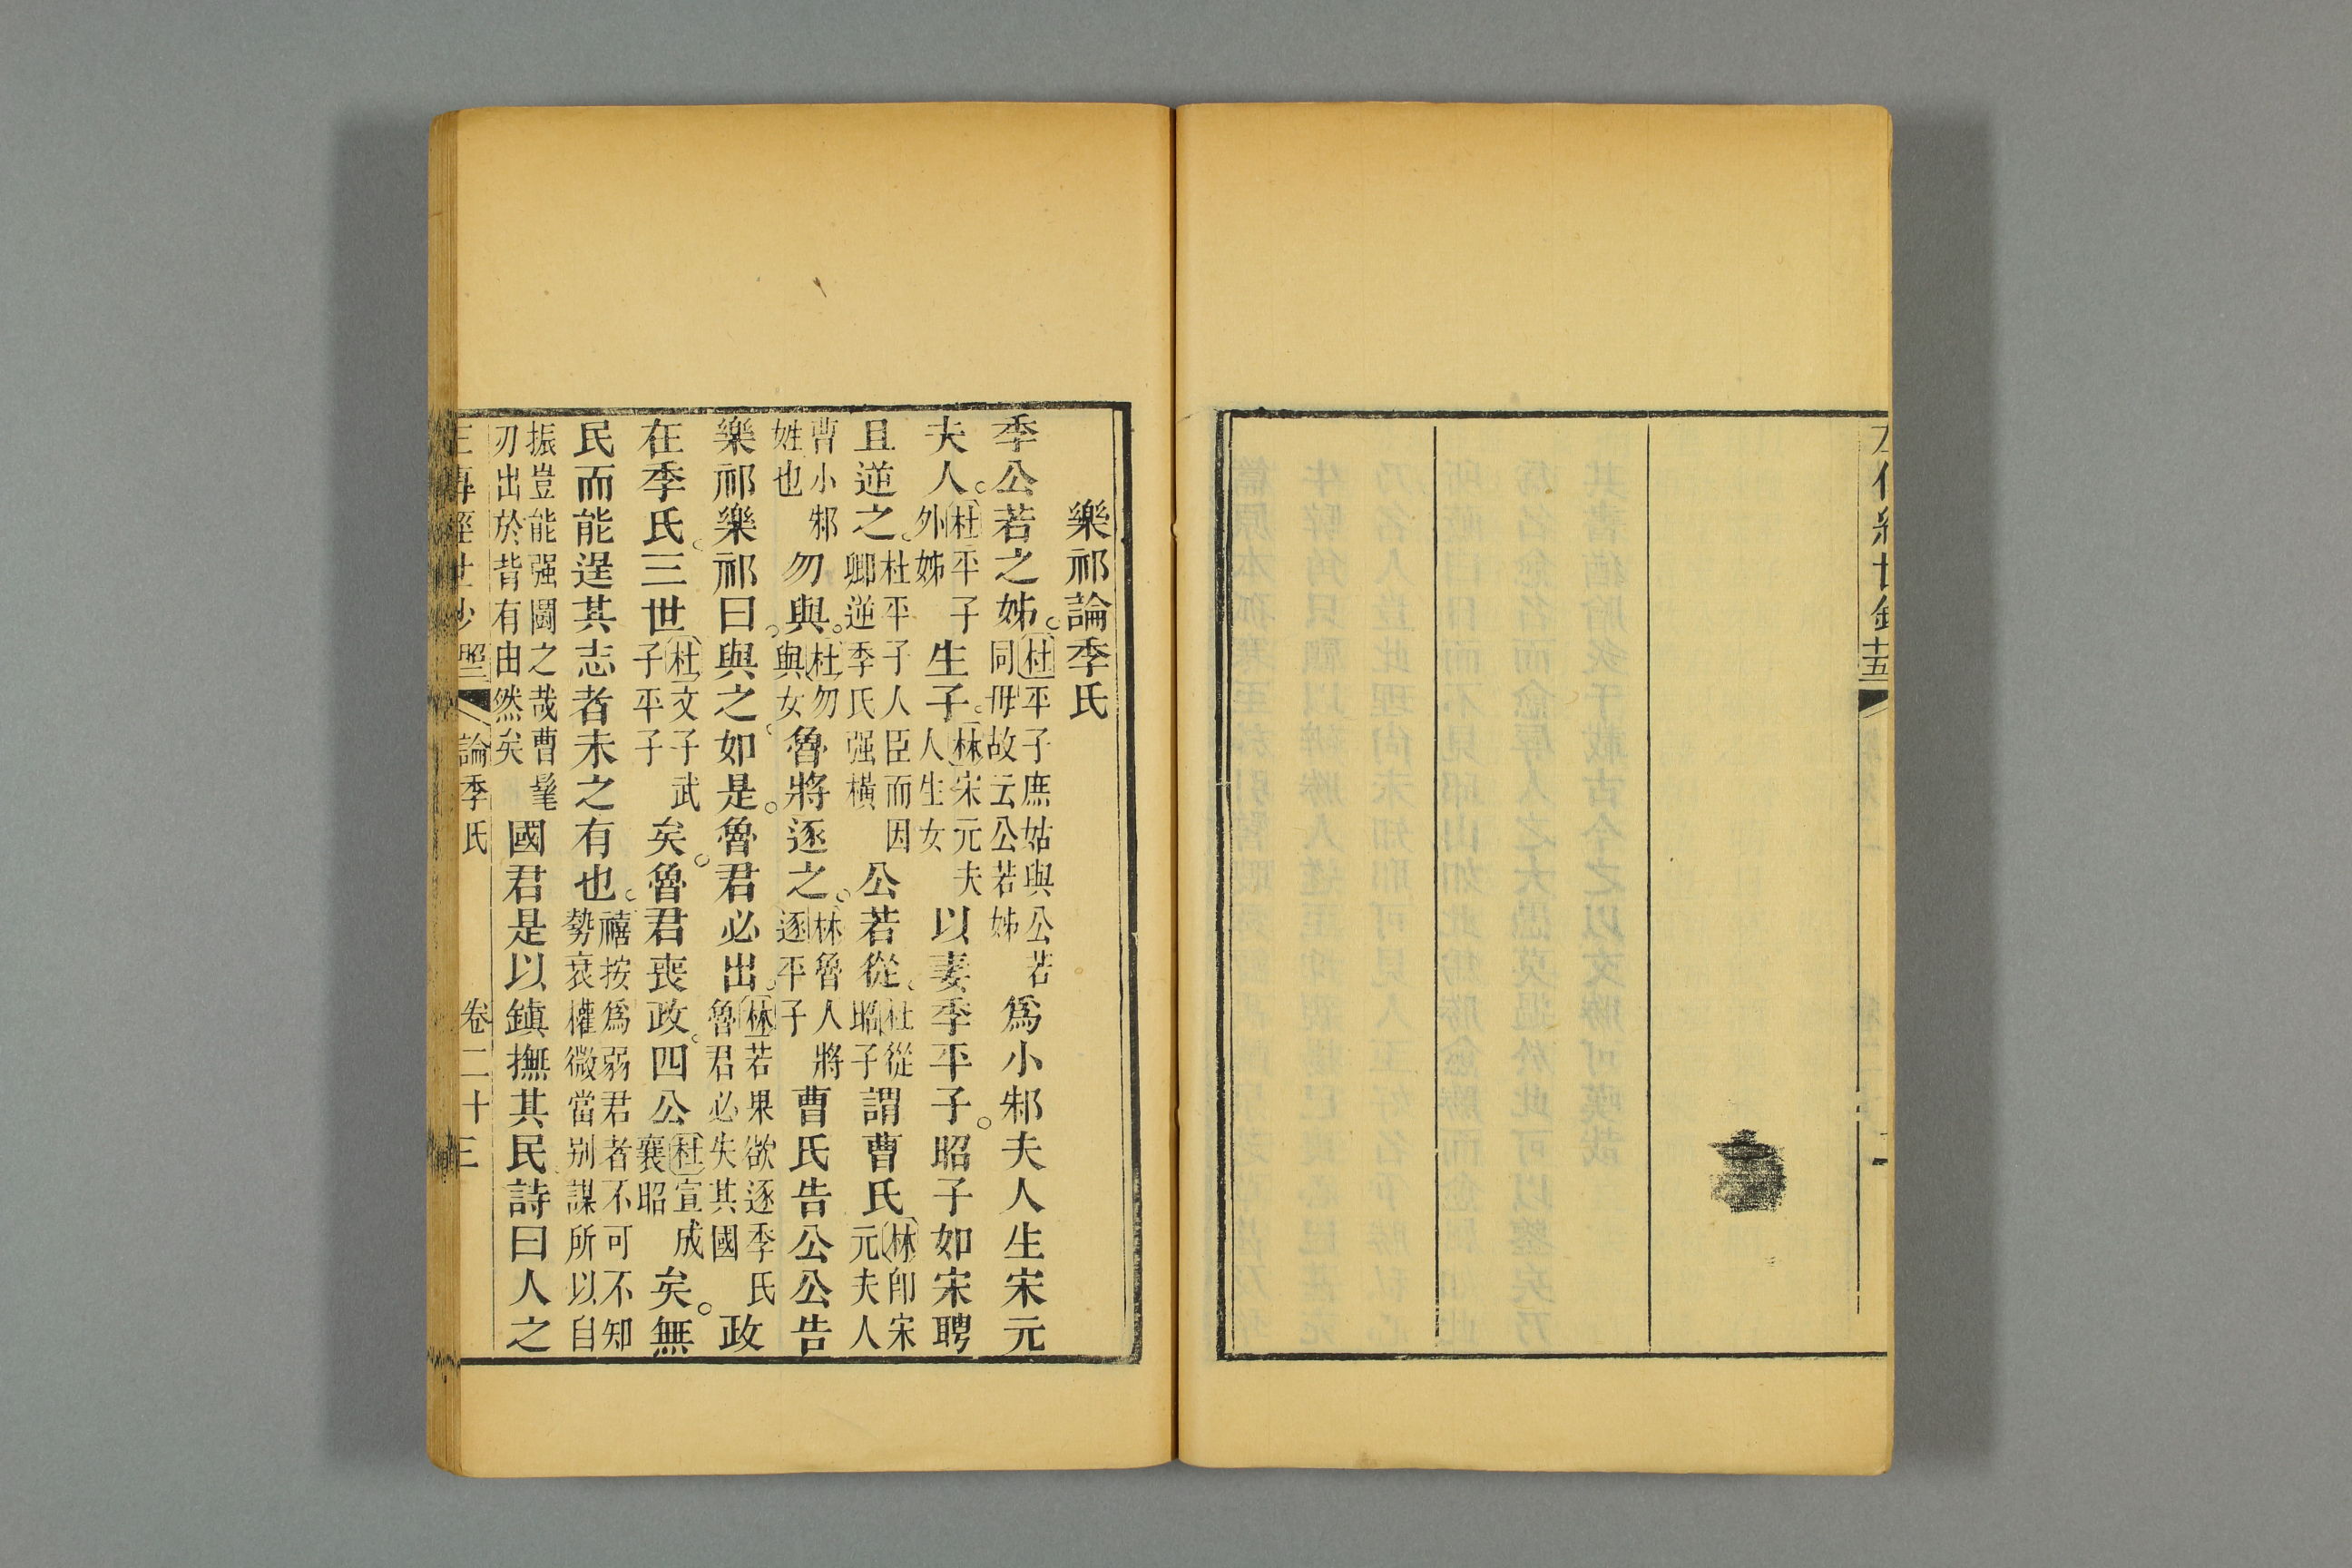 樂祁論季氏
季公若之姊。杜平子庶姑與公若同母故云公若姊爲小邾夫人生宋元
夫人。杜平子外姊生子。林宋元夫人生女以妻季平子。昭子如宋聘
且逆之。杜平子人臣而因卿逆季氏强橫公若從。杜從昭子謂曹氏林卽宋元夫人
曹小邾姓也勿與。杜勿與女魯將逐之。林魯人將逐平子曹氏告公公告
樂祁樂祁曰。與之。如是。魯君必出。林若果欲逐季氏魯君必失其國政
在季氏。三世杜文子武子平子矣。魯君喪政。四公杜宣成襄昭矣。無
民而能逞其志者未之有也。禧按爲弱君者不可不知勢衰權微當别謀所以自
振豈能强圖之哉曹髦刃出於背有由然矣國君是以鎮撫其民詩曰人之
論季氏 卷二十三
十五